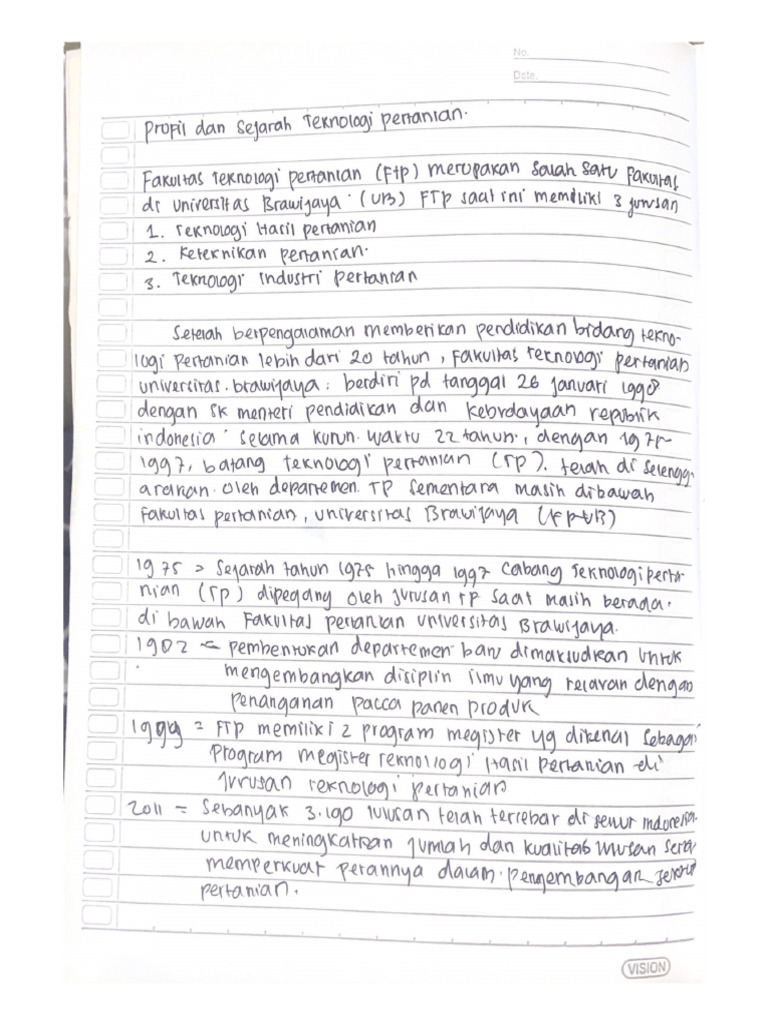 No.
Date.
Profil dan Sejarah Teknologi pertanian.
Fakultas Teknologi pertanian (Ftp) merupakan salah satu fakultas
di universitas Brawijaya (UB) FTP saat ini memiliki 3 jurusan
1. Teknologi Hasil pertanian
2. Keteknikan pertanian.
3. Teknologi Industri pertanian
Setelah berpengalaman memberikan pendidikan bidang tekno-
logi pertanian lebih dari 20 tahun, Fakultas Teknologi pertanian
universitas. brawijaya. berdiri pd tanggal 26 januari 1998
dengan SK menteri pendidikan dan kebudayaan republik
indonesia selama kurun waktu 22 tahun., dengan 1975-
1997, batang teknologi pertanian (TP). telah di selengg-
arakan. oleh departemen. TP sementara masih dibawah
Fakultas pertanian, universitas Brawijaya (FPUB)
1975 = Sejarah tahun 1975 hingga 1997 Cabang Teknologi perta-
nian (TP) dipegang oleh jurusan TP saat masih berada.
di bawah Fakultas pertanian universitas Brawijaya.
1902 = pembentukan departemen baru dimaksudkan untuk
mengembangkan disiplin ilmu yang relavan dengan
penanganan pacca panen produk
1999 = FTP memiliki 2 program megister yg dikenal sebagai
Program megister teknologi Hasil pertanian di
jurusan teknologi pertanian
2011 = Sebanyak 3.190 lulusan telah tercebar di seluruh indonesia.
untuk meningkatkan jumlah dan kualitas lulusan serta
memperkuat perannya dalam. pengembangan sektor
pertanian.
VISION